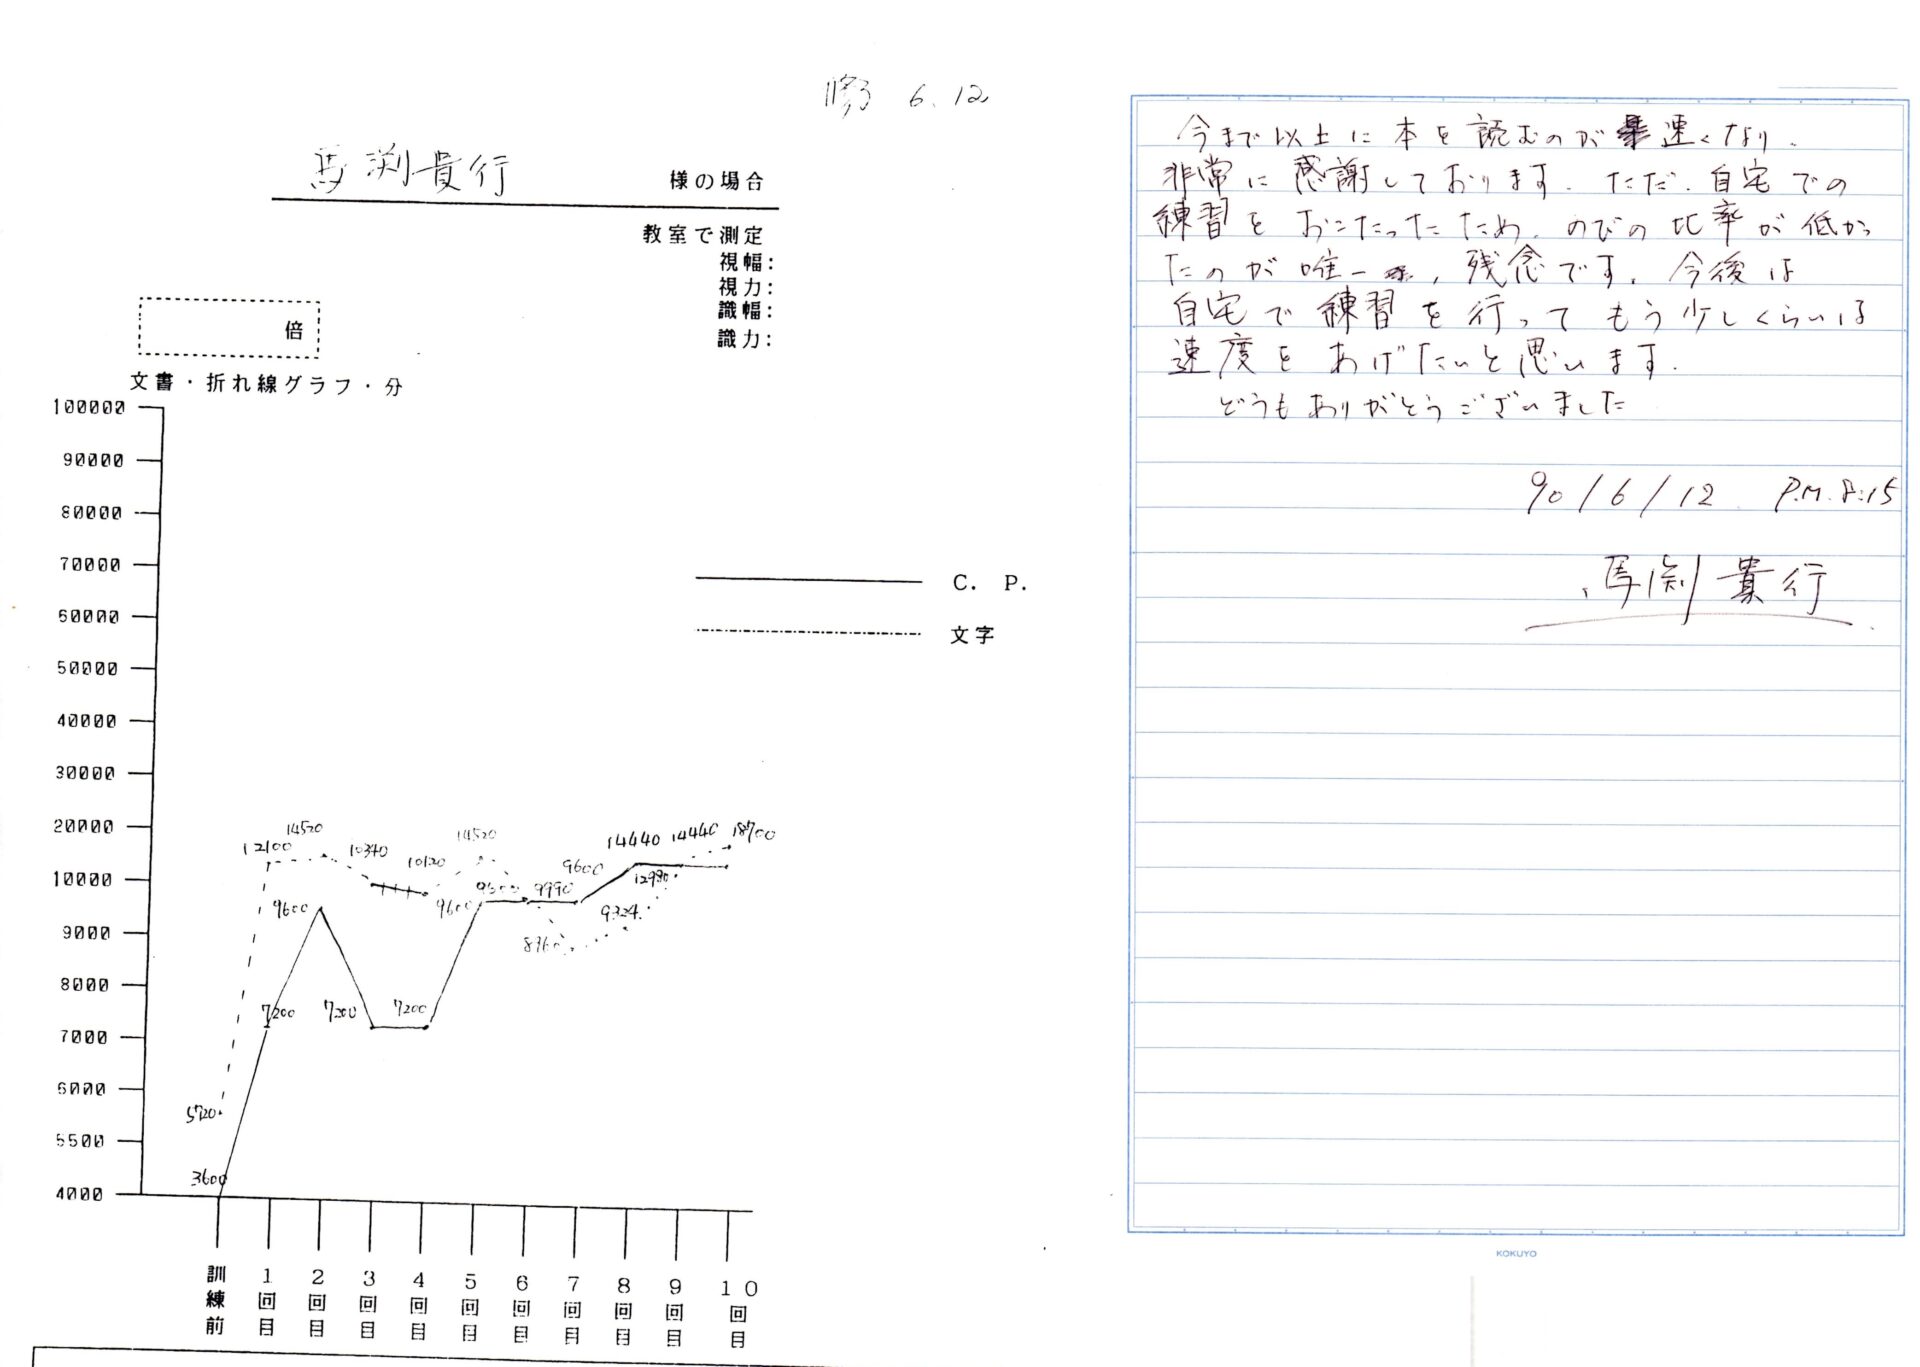 修了 6.12
馬渕貴行 様の場合
教室で測定
視幅:
視力:
識幅:
識力:
倍
文書・折れ線グラフ・分
100000
90000
80000
70000
60000
50000
40000
30000
20000
10000
9000
8000
7000
6000
5500
4000
C. P.
文字
5720
12100
14520
10340
10120
14520
9990
8360
9324
12980
18700
3600
7200
9600
7200
7200
9600
9600
14440
14440
訓練前
1回目
2回目
3回目
4回目
5回目
6回目
7回目
8回目
9回目
10回目
今まで以上に本を読むのが速くなり、
非常に感謝しております。ただ、自宅での
練習をおこたったため、のびの比率が低かっ
たのが唯一、残念です。今後は
自宅で練習を行ってもう少しくらいは
速度をあげたいと思います。
どうもありがとうございました
90/6/12 P.M.8:15
馬渕貴行
KOKUYO